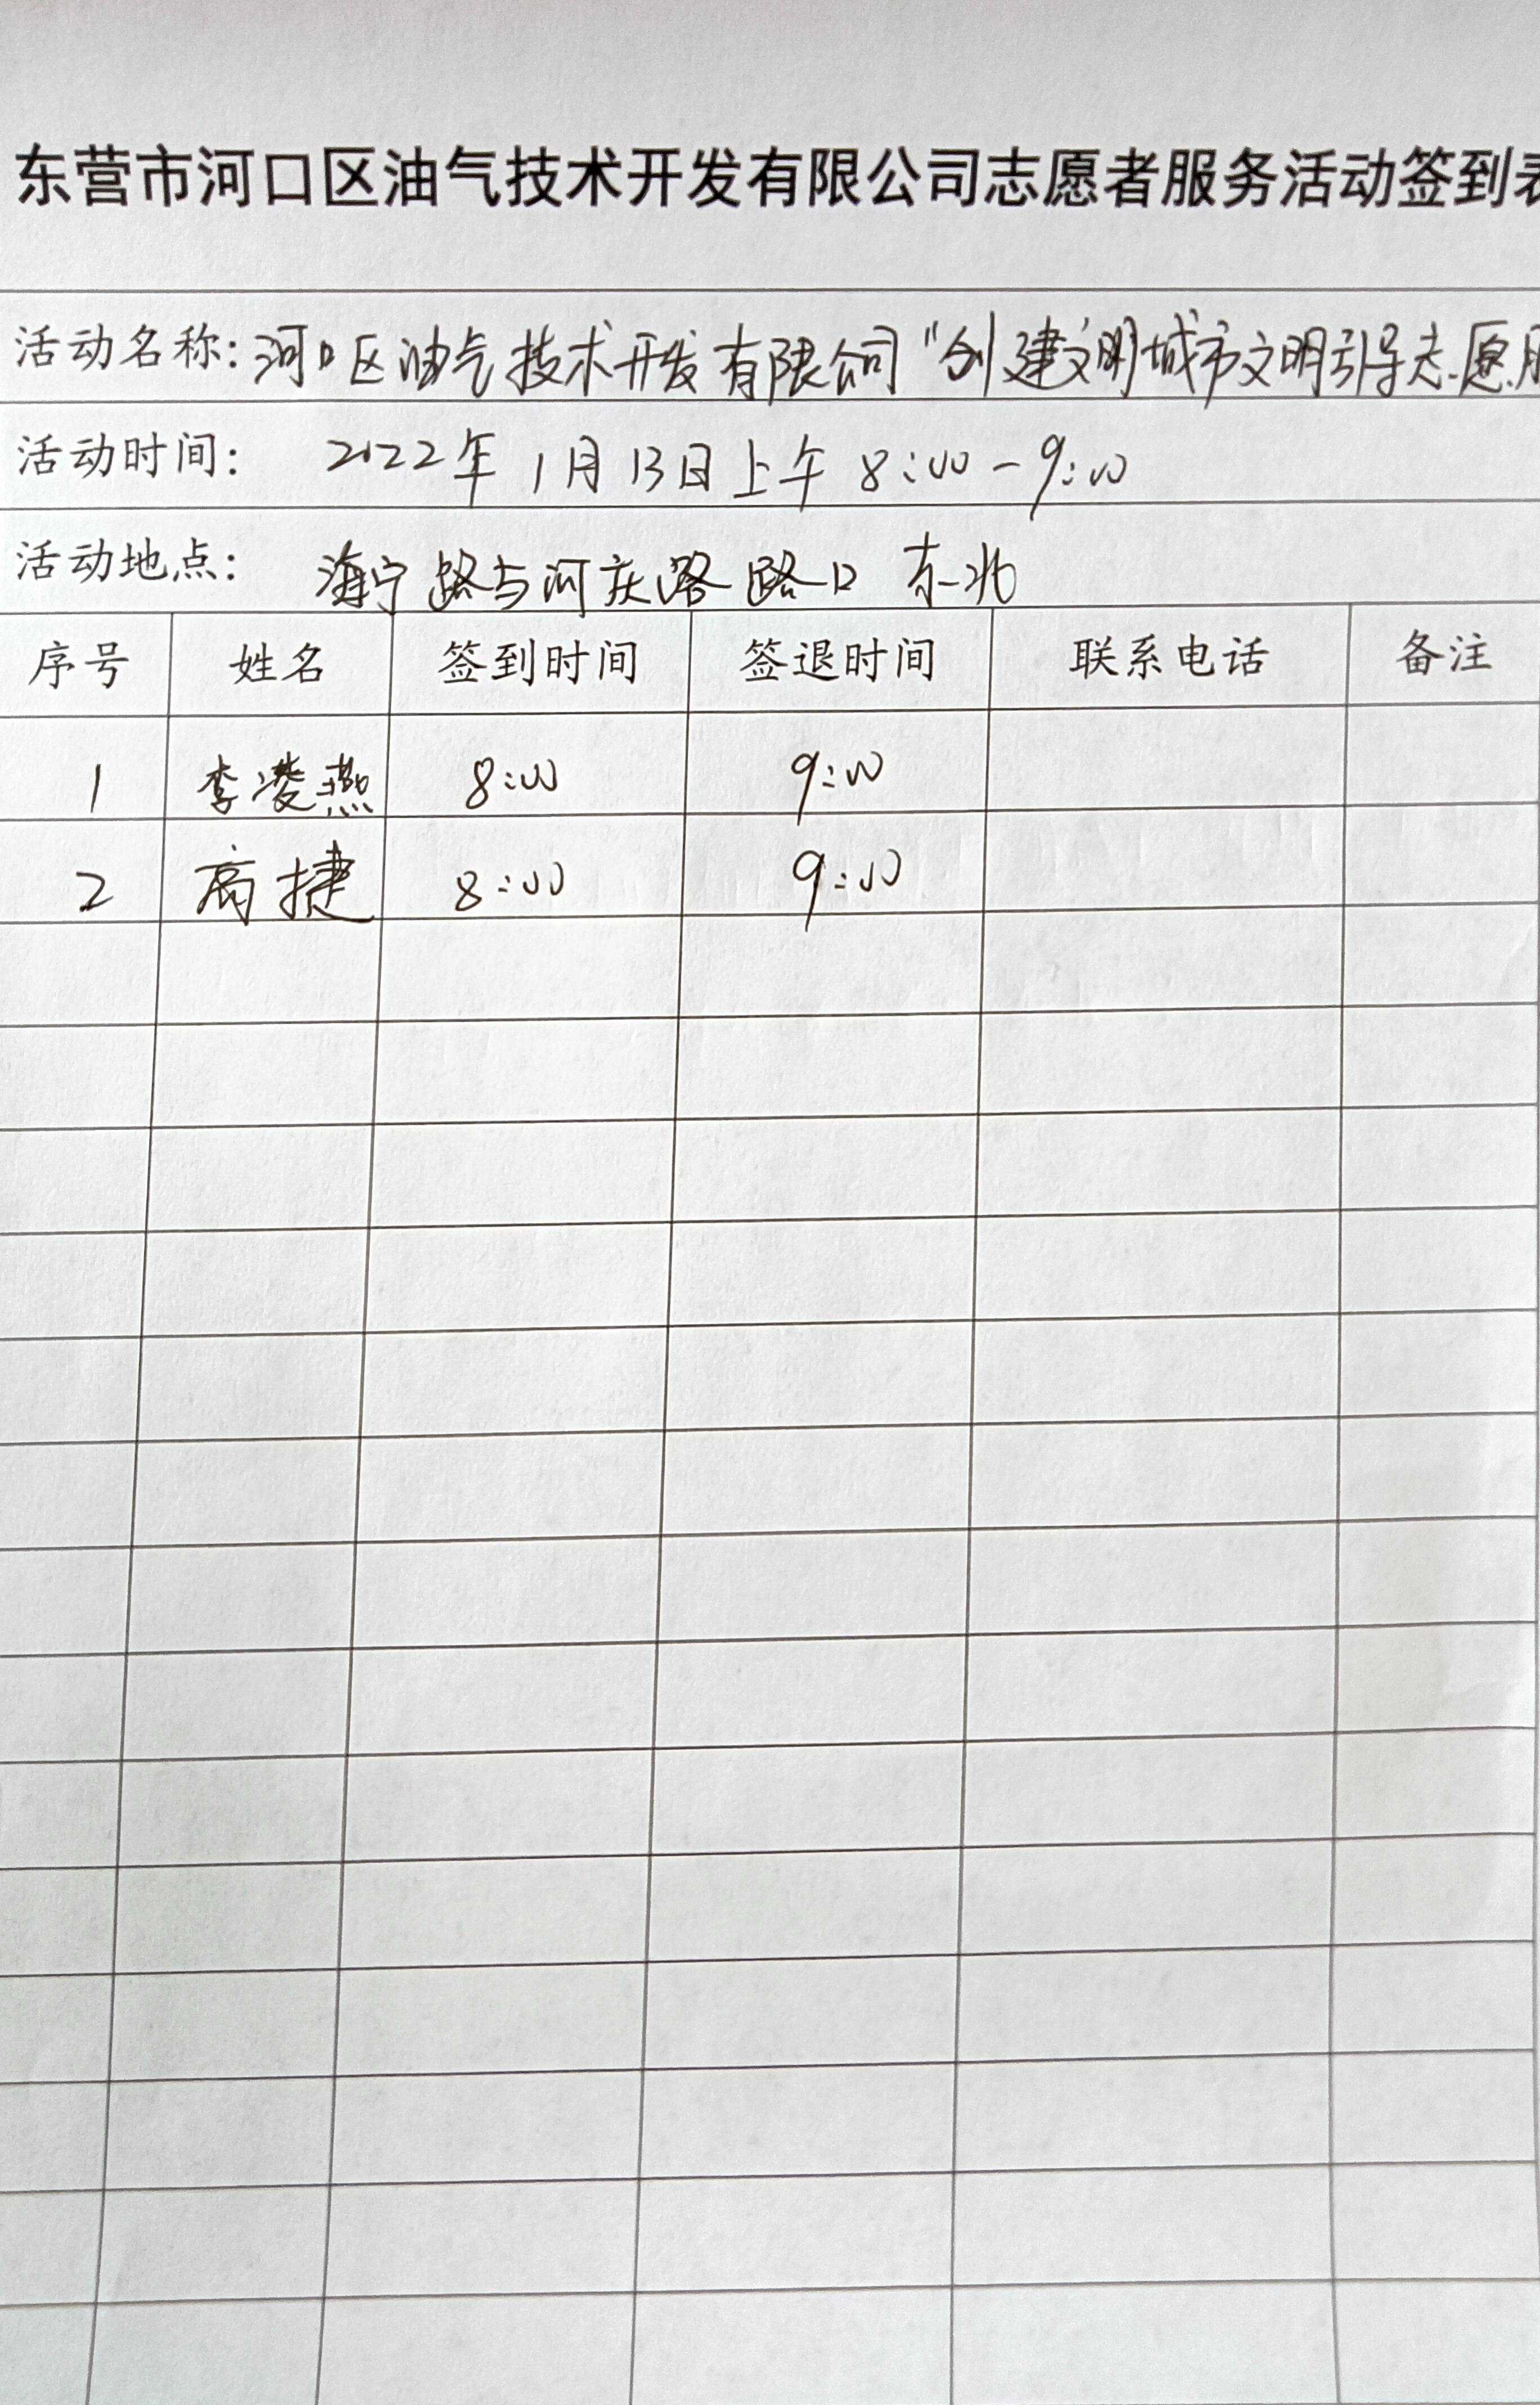 东营市河口区油气技术开发有限公司志愿者服务活动签到表
活动名称：河口区油气技术开发有限公司“创建文明城市文明引导志愿服
活动时间： 2022年 1月13日上午 8:00-9:00
活动地点： 海宁路与河庆路路口 东北
序号 姓名 签到时间 签退时间 联系电话 备注
1 李凌燕 8:00 9:00
2 高捷 8:00 9:00